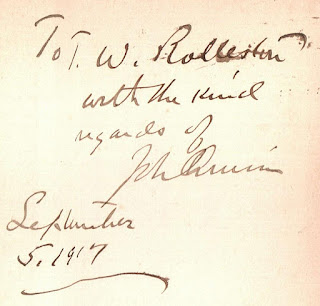 To T. W. Rolleston
with the kind
regards of
John Quinn
September
5. 1917